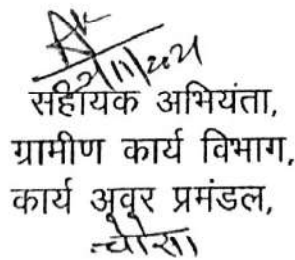 सहायक अभियंता,
ग्रामीण कार्य विभाग,
कार्य अवर प्रमंडल,
चौसा